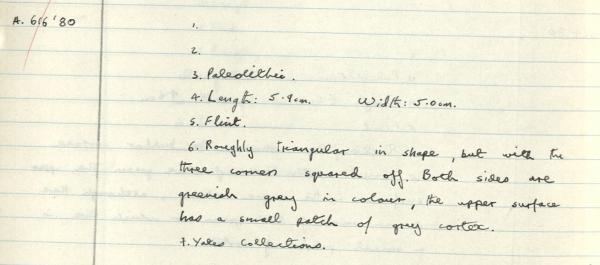 A. 616 '80
1.
2.
3. Paleolithic.
4. Length: 5.9cm. Width: 5.0cm.
5. Flint.
6. Roughly triangular in shape, but with the
three corners squared off. Both sides are
greenish grey in colour, the upper surface
has a small patch of grey cortex.
7. Yates collections.